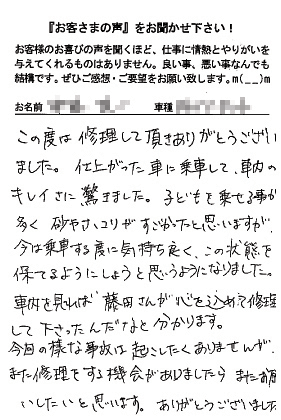 『お客さまの声』をお聞かせ下さい！
お客様のお喜びの声を聞くほど、仕事に情熱とやりがいを
与えてくれるものはありません。良い事、悪い事なんでも
結構です。ぜひご感想・ご要望をお願い致します。m(__)m
お名前 車種
この度は修理して頂きありがとうござい
ました。仕上がった車に乗車して、車内の
キレイさに驚きました。子どもを乗せる事が
多く砂やホコリがすごかったと思いますが、
今は乗車する度に気持ち良く、この状態を
保てるようにしようと思うようになりました。
車内を見れば藤田さんが心を込めて修理
して下さったんだなと分かります。
今回の様な事故は起こしたくありませんが、
また修理をする機会がありましたらまたお願
いしたいと思います。ありがとうございました